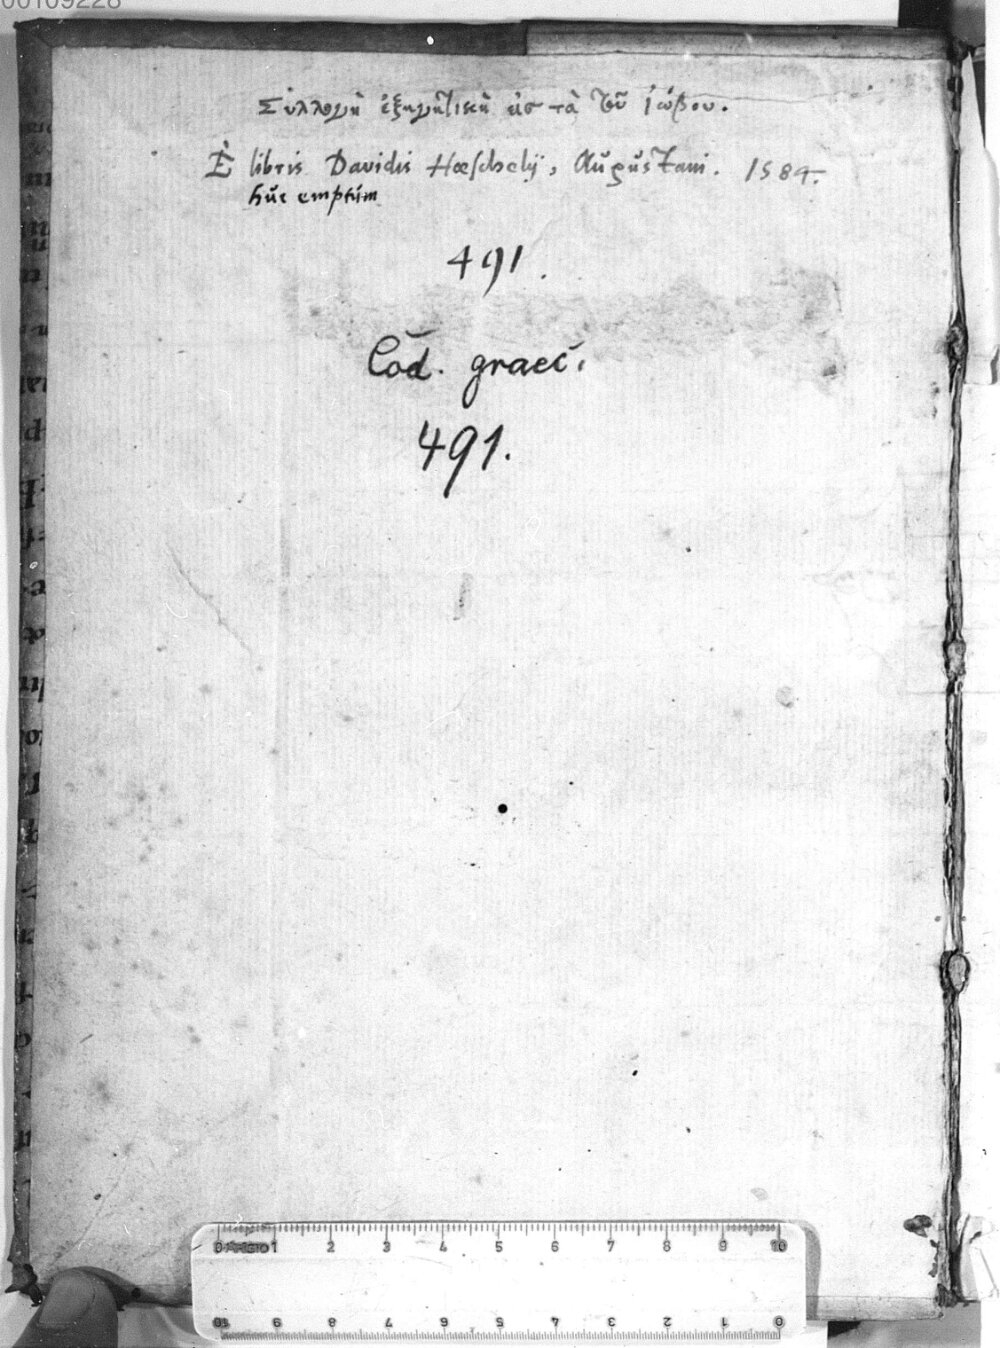 00109228
Συλλογὴ ἐξηγητικὴ εἰς τὰ τοῦ Ἰώβου.
E libris Davidis Hœschelij, Augustani. 1584.
huc emptum
491.
Cod. graec.
491.
0 1 2 3 4 5 6 7 8 9 10
10 9 8 7 6 5 4 3 2 1 0